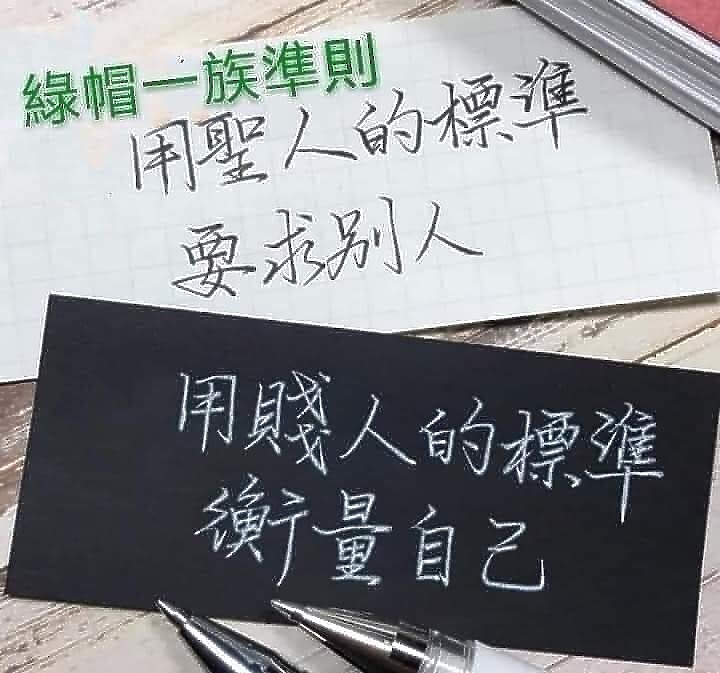 綠帽一族準則
用聖人的標準
要求別人
用賤人的標準
衡量自己